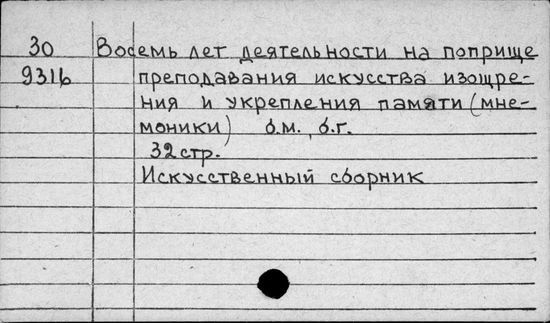 30 Восемь лет деятельности на поприще
9316 преподавания искусства изощре-
ния и укрепления памяти (мне-
моники) б.м., б.г.
32 стр.
Искусственный сборник